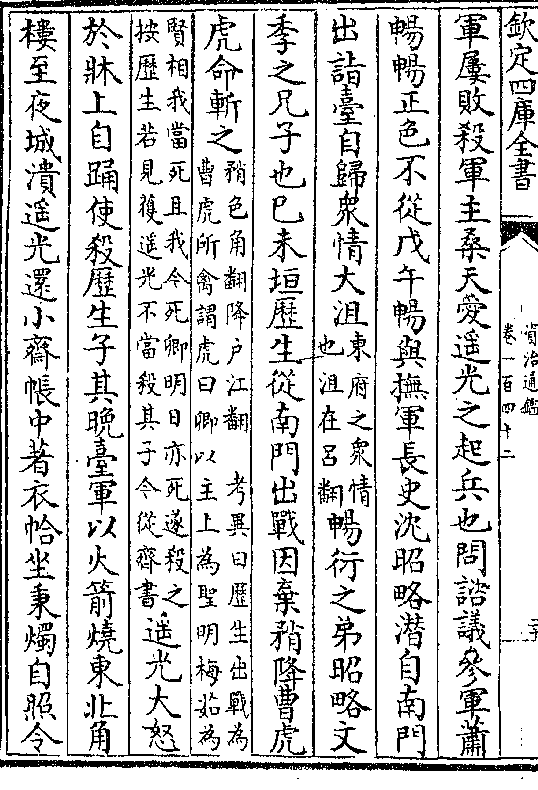 欽定四庫全書
資治通鑑
卷一百四十二
軍屢敗殺軍主桑天愛遥光之起兵也問諮議參軍蕭
暢暢正色不從戊午暢與撫軍長史沈昭略潛自南門
出詣臺自歸衆情大沮
東府之衆情
也沮在吕翻
暢衍之弟昭略文
季之兄子也己未垣歷生從南門出戰因棄矟降曹虎
虎命斬之
矟色角翻降户江翻 考異曰歷生出戰為
曹虎所禽謂虎曰卿以主上為聖明梅茹為
賢相我當死且我今死卿明日亦死遂殺之
按歷生若見獲遥光不當殺其子今從齊書
遥光大怒
於牀上自踊使殺歷生子其晚臺軍以火箭燒東北角
樓至夜城潰遥光還小齋帳中著衣帢坐秉燭自照令